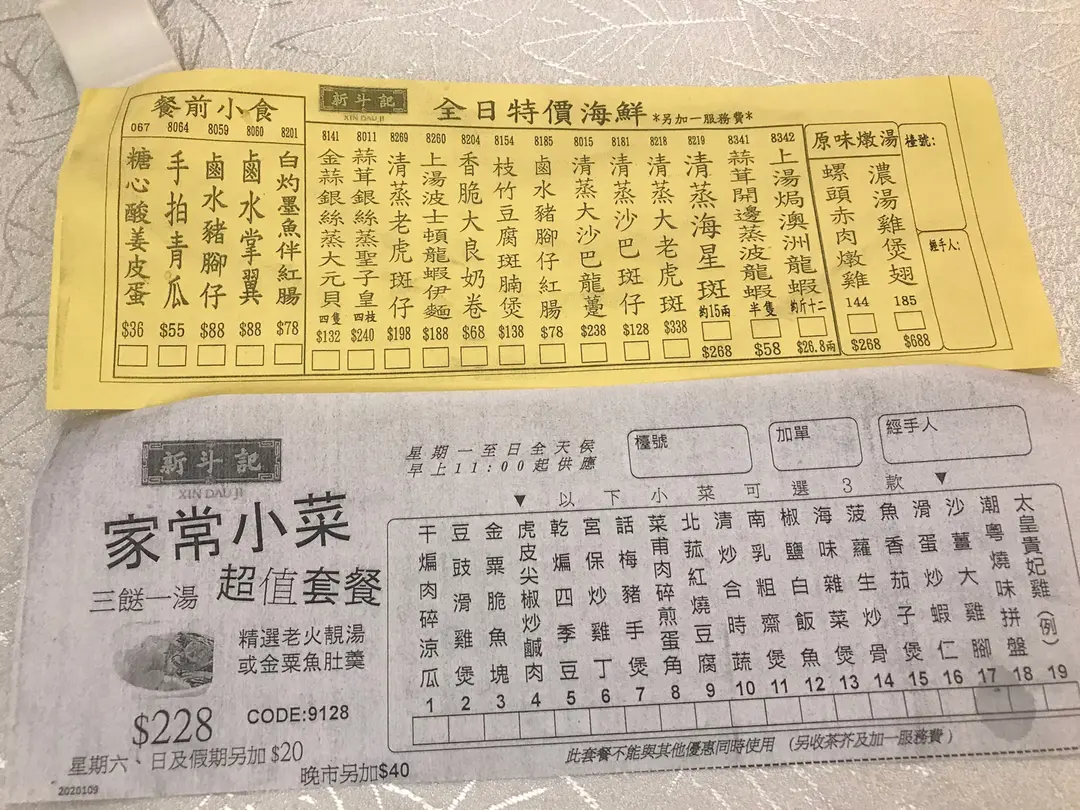 餐前小食
067 糖心酸姜皮蛋 $36
8064 手拍青瓜 $55
8059 鹵水豬腳仔 $88
8060 鹵水掌翼 $88
8201 白灼墨魚伴紅腸 $78
新斗記
XIN DAU JI
全日特價海鮮 *另加一服務費*
8141 金蒜銀絲蒸大元貝 四隻 $132
8011 蒜茸銀絲蒸聖子皇 四枝 $240
8269 清蒸老虎斑仔 $198
8260 上湯波士頓龍蝦伊麵 $188
8204 香脆大良奶卷 $68
8154 枝竹豆腐斑腩煲 $138
8185 鹵水豬腳仔紅腸 $78
8015 清蒸大沙巴龍躉 $238
8181 清蒸沙巴斑仔 $128
8218 清蒸大老虎斑 $338
8219 清蒸海星斑 約15兩 $268
8341 蒜茸開邊蒸波龍蝦 半隻 $58
8342 上湯焗澳洲龍蝦 約斤十二 $26.8兩
原味燉湯
螺頭赤肉燉雞 144 $268
濃湯雞煲翅 185 $688
檯號:
經手人:
新斗記
XIN DAU JI
家常小菜
三餸一湯 超值套餐
精選老火靚湯
或金粟魚肚羹
$228 CODE:9128
星期六、日及假期另加 $20
晚市另加$40
2020109
星期一至日全天侯
早上11:00起供應
檯號
加單
經手人
▼ 以下小菜可選3款 ▼
干煸肉碎涼瓜 1
豆豉滑雞煲 2
金粟脆魚塊 3
虎皮尖椒炒鹹肉 4
乾煸四季豆 5
宮保炒雞丁 6
話梅豬手 7
菜甫肉碎煎蛋角 8
北菰紅燒豆腐 9
清炒合時蔬 10
南乳粗齋煲 11
椒鹽白飯魚 12
海味雜菜煲 13
菠蘿生炒骨 14
魚香茄子煲 15
滑蛋炒蝦仁 16
沙薑大雞腳 17
潮粵燒味拼盤 18
太皇貴妃雞(例) 19
此套餐不能與其他優惠同時使用 (另收茶芥及加一服務費)